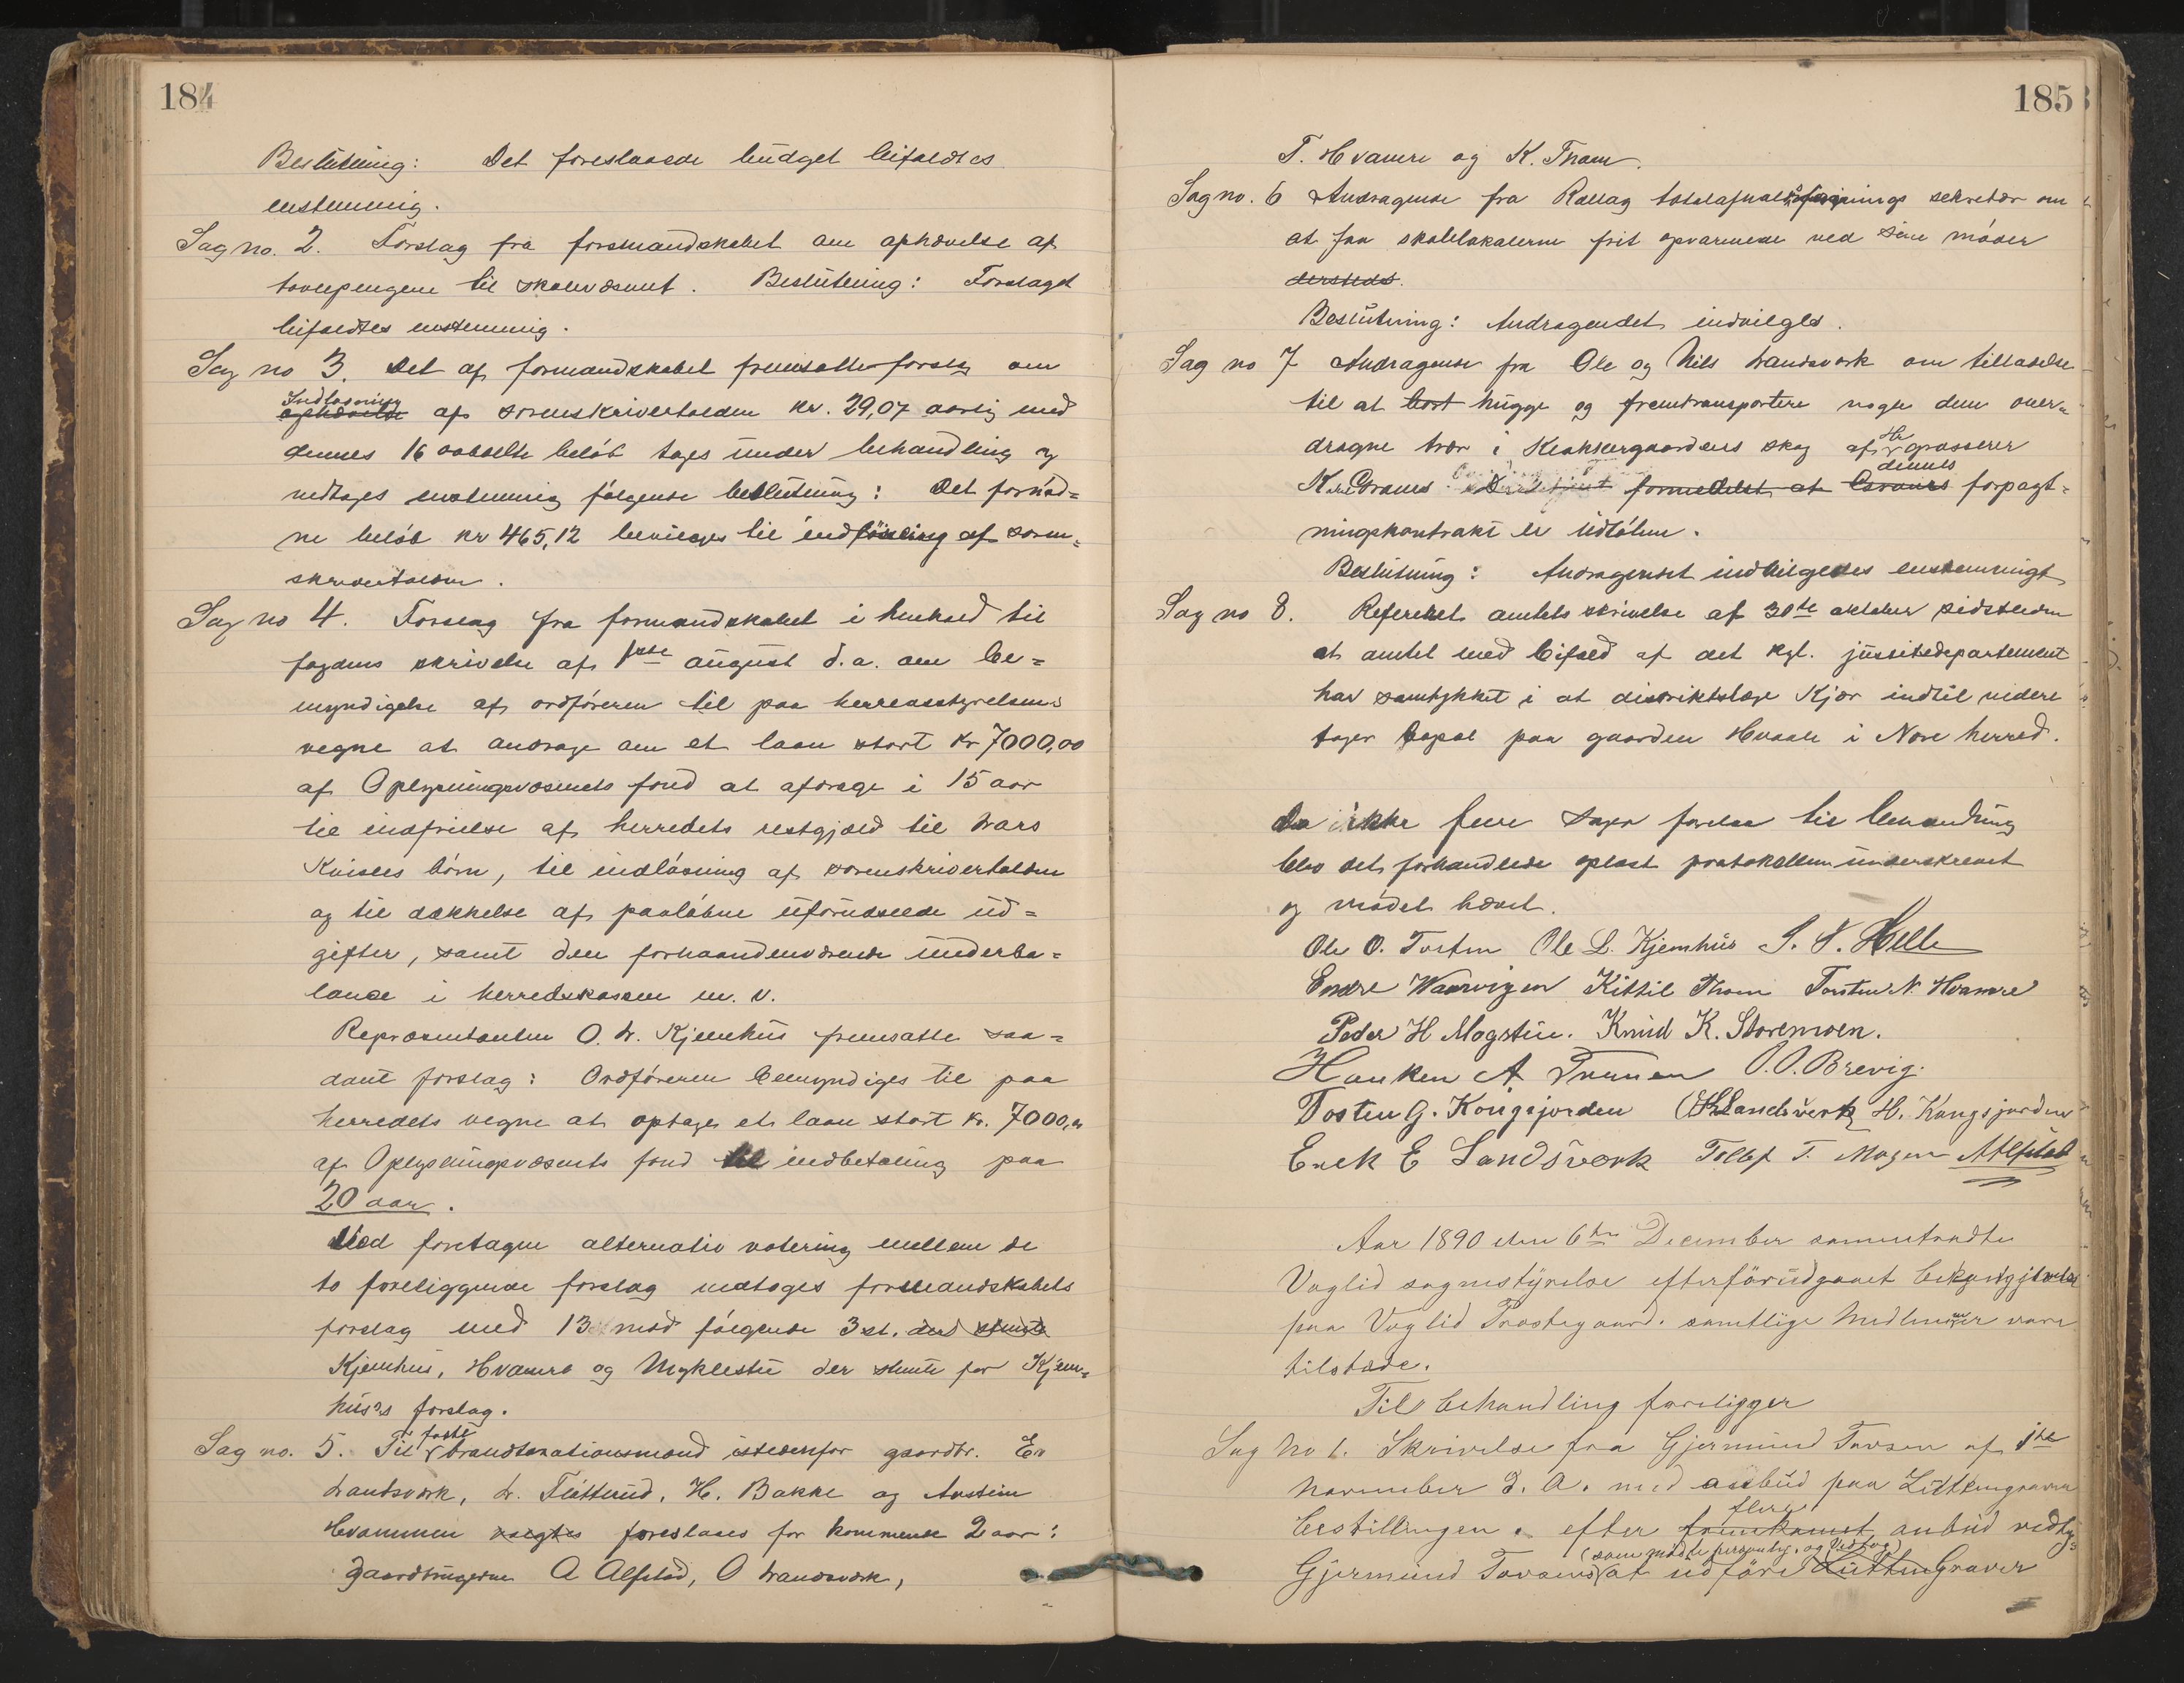 184
Beslutning: Det foreslaaede budget bifaldtes
enstemmig.
Sag no. 2. Forslag fra formandskabet om ophævelse af
tavlepengene til skolevæsenet. Beslutning: Forslaget
bifaldtes enstemmig.
Sag no 3. Det af formandskabet fremsatte forslag om
Indløsning
ophævelse af sorenskrivertolden kr. 29,07 aarlig med
dennes 16 dobbelte beløb toges under behandling og
vedtoges enstemmig følgende beslutning: Det fornød=
ne beløb kr 465,12 bevilges til indløsning af soren=
skrivertolden.
Sag no 4. Forslag fra formandskabet i henhold til
fogdens skrivelse af 1ste august d.a. om be=
myndigelse af ordføreren til paa herredsstyrelsens
vegne at andrage om et laan stort kr 7000,00
af Oplysningsvæsenets fond at afdrage i 15 aar
til indfrielse af herredets restgjæld til Lars
Kvisles børn, til indløsning af sorenskrivertolden
og til dækkelse af paaløbne uforudseede ud=
gifter, samt den forhaandenværende underba=
lance i herredskassen m. v.
Repræsentanten O. L. Kjemhus fremsatte saa=
dant forslag: Ordføreren bemyndiges til paa
herredets vegne at optage et laan stort kr. 7000,00
af Oplysningsvæsenets fond til indbetaling paa
20 aar.
Ved foretagen alternativ votering mellem de
to foreliggende forslag vedtoges formandskabets
forslag med 13 mod følgende 3 st. der stemte
Kjemhus, Hvamre og Myklestu der stemte for Kjem=
hus's forslag.
faste
Sag no. 5. Til brandtaxationsmænd istedenfor gaardbr. Er
Landsværk, L. Fløtterud, H. Bakke og Austein
Hvammen valgtes foreslaaes for kommende 2 aar:
gaardbrugerne A Alfstad, O Landsværk,
185
T. Hvamre og K. Thom.
Sag no. 6 Andragende fra Rollag totalafholdsforenings sekretær om
at faa skolelokalerne frit opvarmede ved sine møder
dersteds.
Beslutning: Andragendet indvilges.
Sag no 7 Andragende fra Ole og Nils Landsværk om tilladelse
til at bort hugge og fremtransportere nogle dem over=
Hr
dragne trær i Klokkergaardens skog af grosserer
dennes
K. Graves formedelst at Graves forpagt=
ningskontrakt er udløben.
Beslutning: Andragendet indvilgedes enstemmigt
Sag no 8. Refereret amtets skrivelse af 30te oktober sidstleden
at amtet med bifald af det kgl. justitsdepartement
har samtykket i at distriktslæge Kjær indtil videre
tager bopæl paa gaarden Hvaale i Nore herred.
Da ikke flere sager forelaa til behandling
blev det forhandlede oplæst protokollen underskrevet
og mødet hævet.
Ole O. Torsten Ole L. Kjemhus S. T. Helle
Endre Waarvigen Kittil Thom Torsten N. Hvamre
Peder H Mogstue. Knud K. Storemoen.
Haaken A Traaen O.O. Brevig.
Tosten G. Kongsjorden O Landsverk H. Kongsjorden
Erek E Landsverk Tollef T. Mogen AAlfstad
Aar 1890 den 6te December sammentraadte
Veglid sognestyrelse efter forudgaaet bekjendtgjørelse
paa Veglid Prostegaard. samtlige Medlemmer vare
tilstæde.
Til behandling foreligger
Sag No 1. Skrivelse fra Gjermund Tovsen af 1ste
November d. A. med anbud paa Lüttengraver
flere
bestillingen. efter fremkomet anbud vedtoges
(som mødte personlig, og vedtog)
Gjermund Tovsens at udføre Lüttengraver